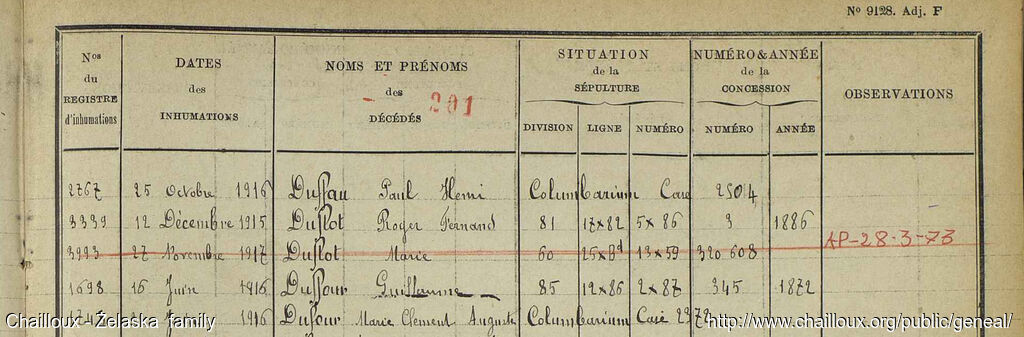 N° 9128. Adj. F
Nos du REGISTRE d'inhumations | DATES des INHUMATIONS | NOMS ET PRÉNOMS des DÉCÉDÉS | SITUATION de la SÉPULTURE | NUMÉRO & ANNÉE de la CONCESSION | OBSERVATIONS
- 201
DIVISION | LIGNE | NUMÉRO | NUMÉRO | ANNÉE
2767 25 Octobre 1916 Dussau Paul Henri Columbarium Case 2504
3339 12 Décembre 1915 Duflot Roger Fernand 81 17x82 5x86 3 1886
AP-28-3-73
3993 27 Novembre 1917 Duflot Marie 60 13x59 320 608
1698 16 Juin 1916 Dufour Guillaume 85 12x86 2x87 345 1872
1916 Dufour Marie Clement Auguste Columbarium Case
Chailloux - Żelaska family
http://www.chailloux.org/public/geneal/